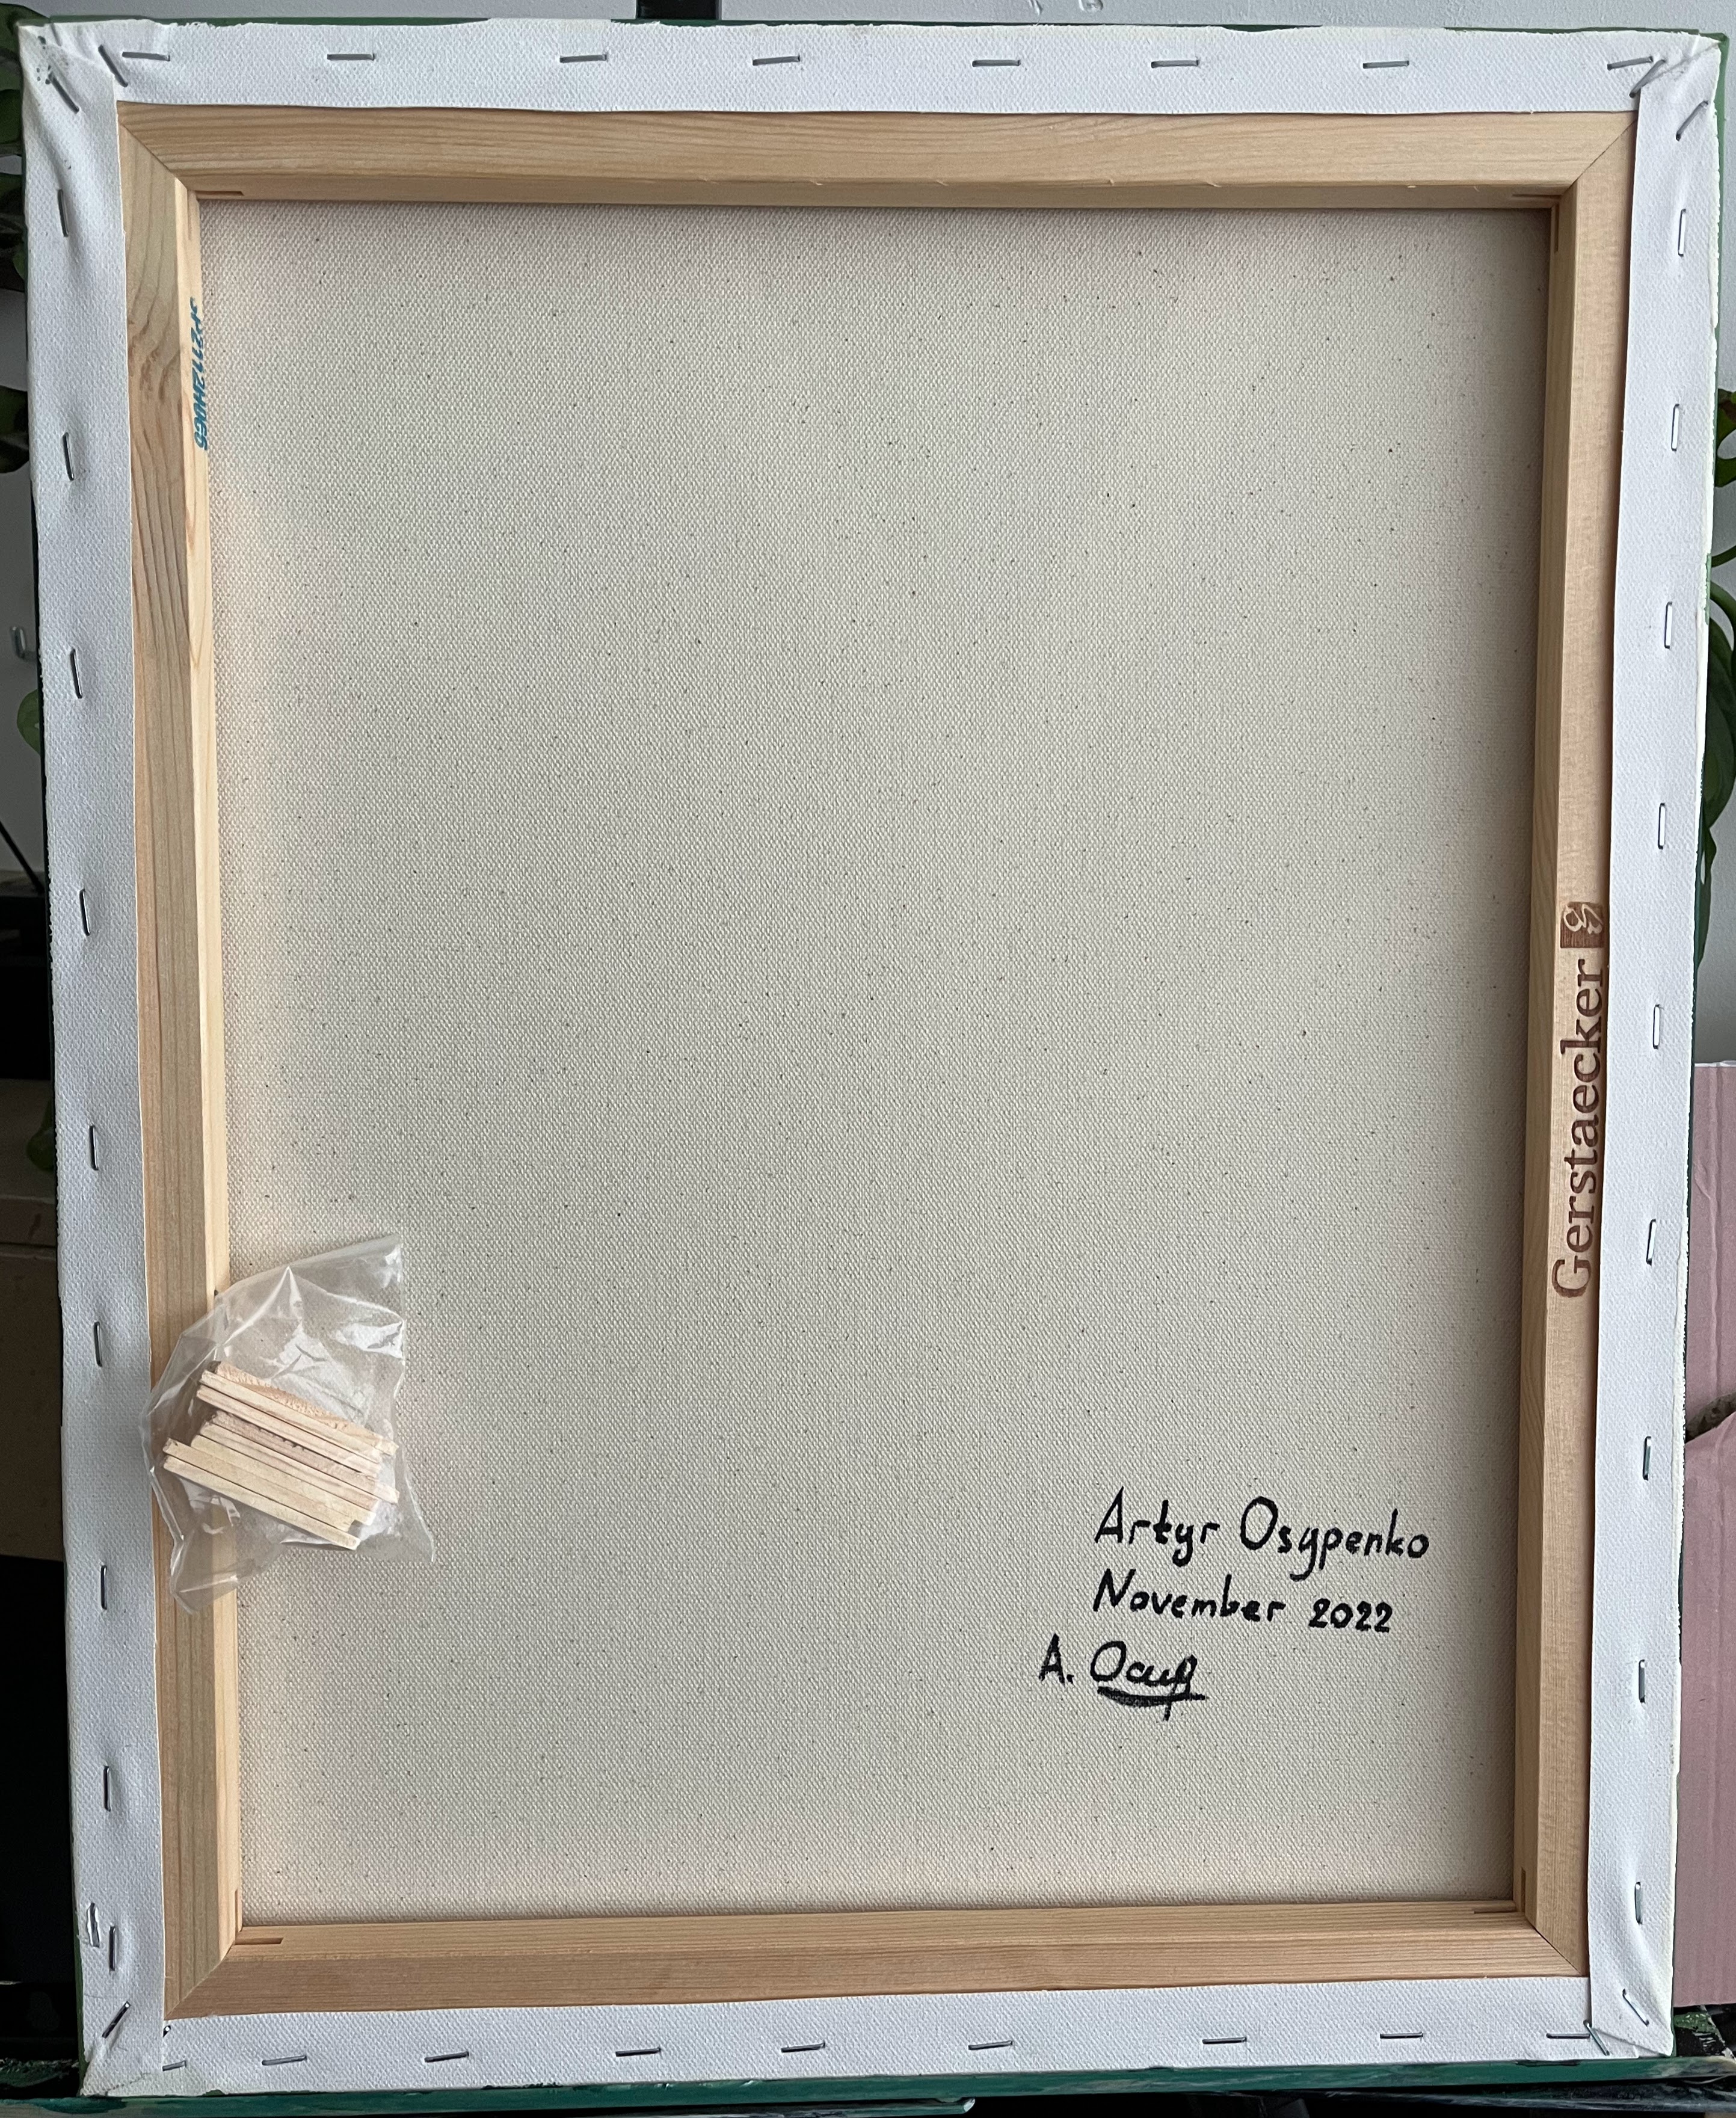 Gerstaecker
Artyr Osypenko
November 2022
A. Осип